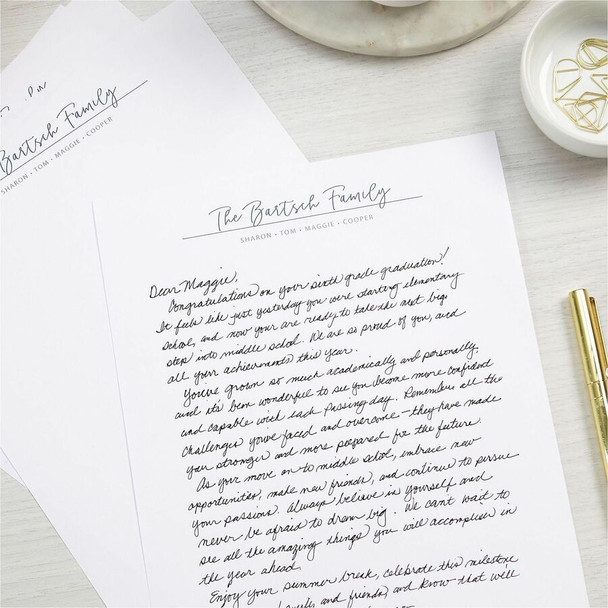 Bartsch Family
SHARON • TOM • MAGGIE • COOPER
The Bartsch Family
SHARON • TOM • MAGGIE • COOPER
Dear Maggie,
Congratulations on your sixth grade graduation!
It feels like just yesterday you were starting elementary
school, and now your are ready to take the next big
step into middle school. We are so proud of you, and
all your achievements this year.
You've grown so much academically and personally,
and it's been wonderful to see you become more confident
and capable with each passing day. Remember all the
challenges you've faced and overcome - they have made
you stronger and more prepared for the future.
As your move on to middle school, embrace new
opportunities, make new friends, and continue to pursue
your passions. Always believe in yourself and
never be afraid to dream big. We can't wait to
see all the amazing things you will accomplish in
the year ahead.
Enjoy your summer break, celebrate this milestone
friends, and know that we'll